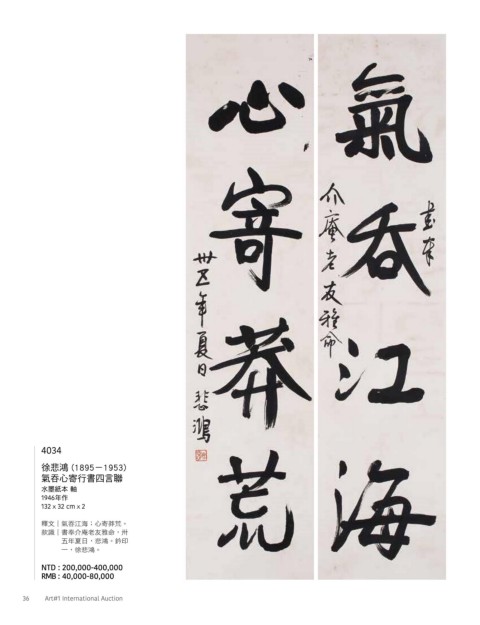 氣吞江海
書奉
介庵老友雅命
心寄莽荒
卅五年夏日 悲鴻
4034
徐悲鴻（1895－1953）
氣吞心寄行書四言聯
水墨紙本 軸
1946年作
132 x 32 cm x 2
釋文｜氣吞江海；心寄莽荒。
款識｜書奉介庵老友雅命，卅
五年夏日，悲鴻。鈐印
一，徐悲鴻。
NTD : 200,000-400,000
RMB : 40,000-80,000
36 Art#1 International Auction